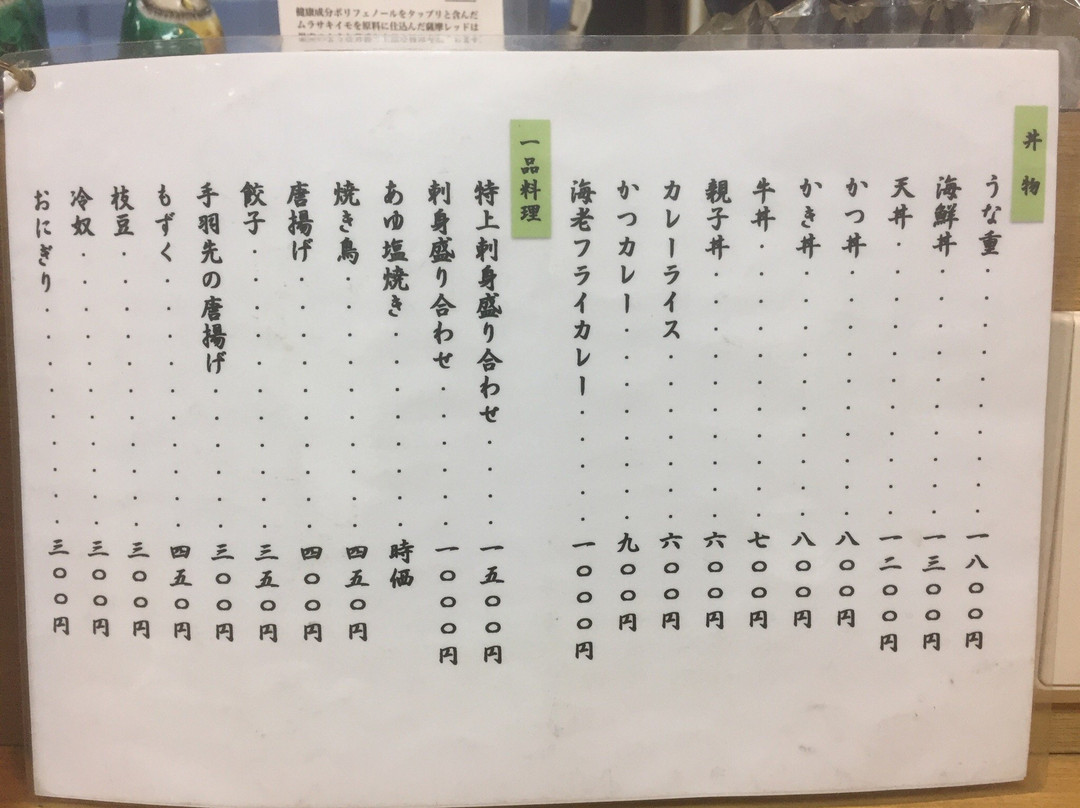 健康成分ポリフェノールをタップリと含んだ
ムラサキイモを原料に仕込んだ薩摩レッドは
丼物
うな重・・・・・・・・・・一八〇〇円
海鮮丼・・・・・・・・・・一三〇〇円
天丼・・・・・・・・・・・一二〇〇円
かつ丼・・・・・・・・・・八〇〇円
かき丼・・・・・・・・・・八〇〇円
牛丼・・・・・・・・・・・七〇〇円
親子丼・・・・・・・・・・六〇〇円
カレーライス・・・・・・・六〇〇円
かつカレー・・・・・・・・九〇〇円
海老フライカレー・・・・・一〇〇〇円
一品料理
特上刺身盛り合わせ・・・・一五〇〇円
刺身盛り合わせ・・・・・・一〇〇〇円
あゆ塩焼き・・・・・・・・時価
焼き鳥・・・・・・・・・・四五〇円
唐揚げ・・・・・・・・・・四〇〇円
餃子・・・・・・・・・・・三五〇円
手羽先の唐揚げ・・・・・・三〇〇円
もずく・・・・・・・・・・四五〇円
枝豆・・・・・・・・・・・三〇〇円
冷奴・・・・・・・・・・・三〇〇円
おにぎり・・・・・・・・・三〇〇円